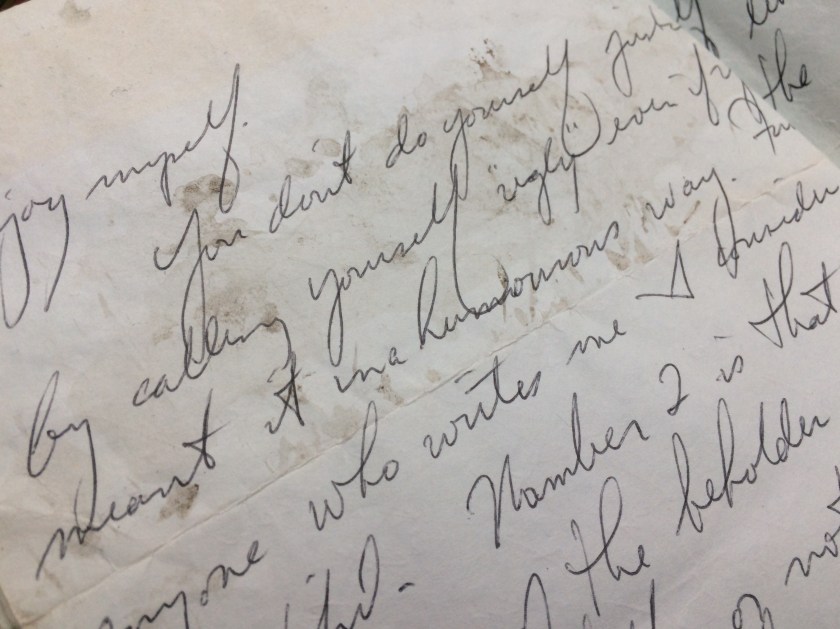 joy myself.
You don't do yourself justice
by calling yourself "ugly" even if
meant it in a humourous way. For the
anyone who writes me I consider
Number 2 is that
the beholder
or not